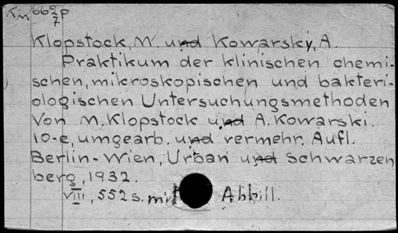 Km 66%p
7
Klopstock, M. und Kowarsky, A.
Praktikum der klinischen chemi-
schen, mikroskopischen und bakteri-
ologischen Untersuchungsmethoden
Von M. Klopstock und A. Kowarski.
10-e, umgearb. und vermehr. Aufl.
Berlin-Wien, Urban und schwarzen
berg, 1932.
VIII, 552 s. mit Abbill.